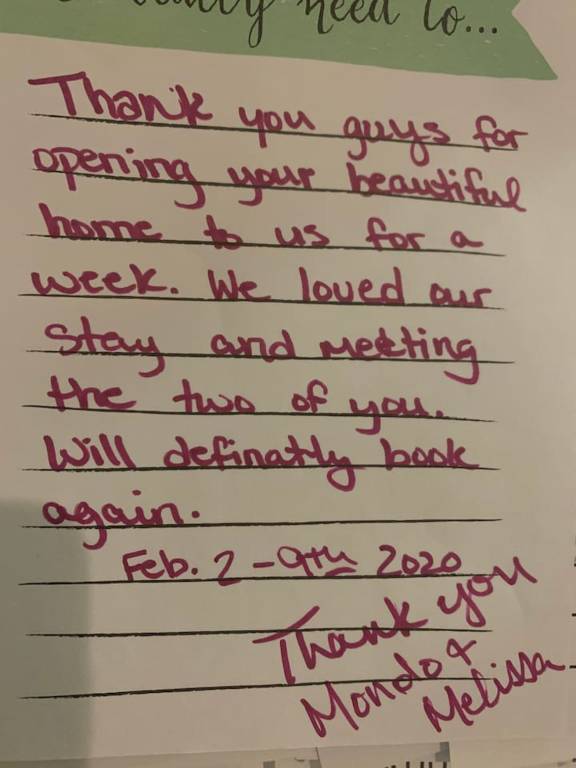 need to...
Thank you guys for
opening your beautiful
home to us for a
week. We loved our
stay and meeting
the two of you.
Will definatly book
again.
Feb. 2-9th 2020
Thank you
Mondo &
Melissa